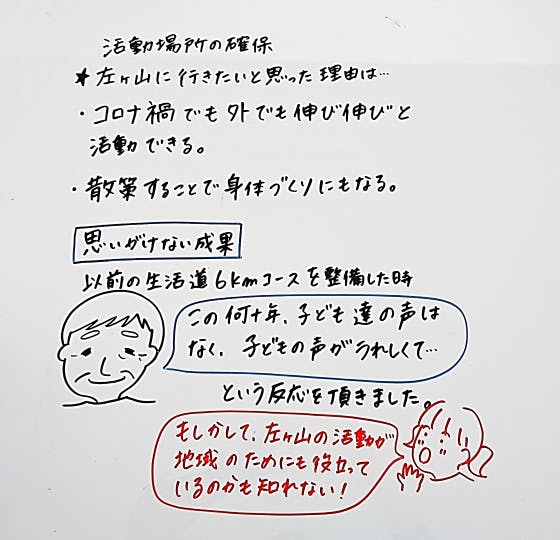 活動場所の確保
★左ヶ山に行きたいと思った理由は…
・コロナ禍でも外でも伸び伸びと
活動できる。
・散策することで身体づくりにもなる。
思いがけない成果
以前の生活道6kmコースを整備した時
この何十年、子ども達の声は
なく、子どもの声がうれしくて…
という反応を頂きました。
もしかして、左ヶ山の活動が
地域のためにも役立って
いるのかも知れない!